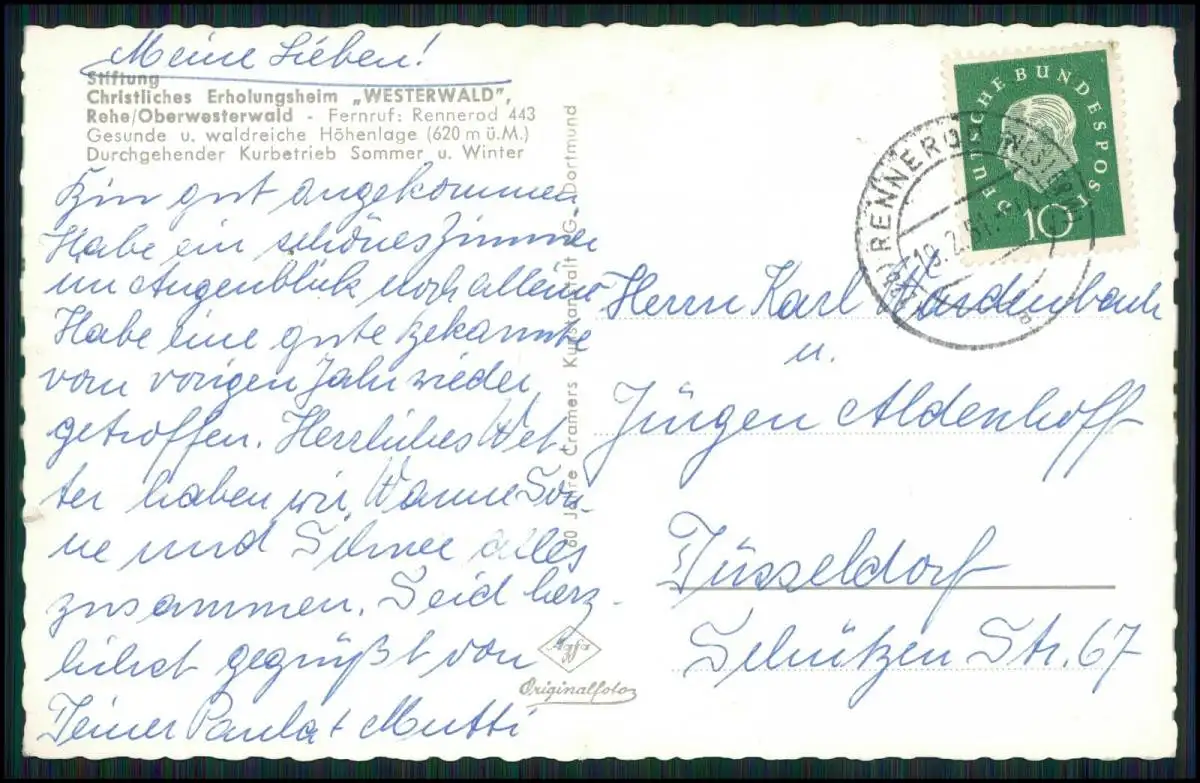 Meine Lieben!
Stiftung
Christliches Erholungsheim „WESTERWALD",
Rehe/Oberwesterwald - Fernruf: Rennerod 443
Gesunde u. waldreiche Höhenlage (620 m ü.M.)
Durchgehender Kurbetrieb Sommer u. Winter
Bin gut angekommen
Habe ein schönes Zimmer
im Augenblick noch alleine
Habe eine gute Bekannte
vom vorigen Jahr wieder
getroffen. Herrliches Wet-
ter haben wir, Warme Son-
ne und Schnee alles
zusammen. Seid herz-
lichst gegrüßt von
Deiner Paula + Mutti
60 Jahre Cramers Kunstanstalt KG. Dortmund
Agfa
Originalfoto
DEUTSCHE BUNDESPOST
10
RENNEROD
Herrn Karl Hardenbach
u.
Jürgen Aldenhoff
Düsseldorf
Schützen Str. 67